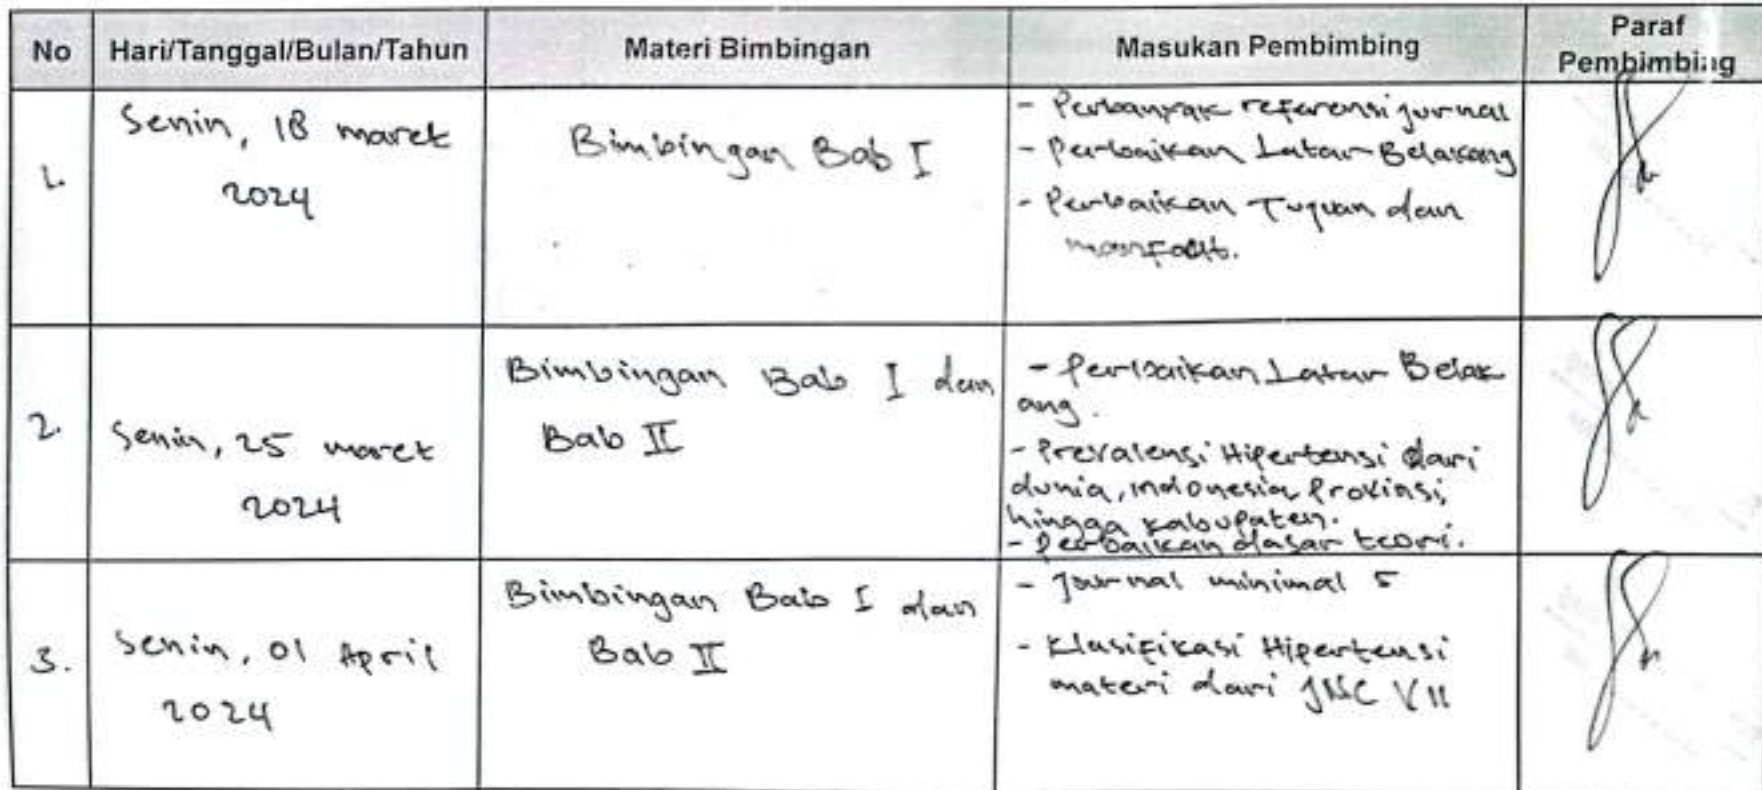 No Hari/Tanggal/Bulan/Tahun Materi Bimbingan Masukan Pembimbing Paraf
Pembimbing
1. Senin, 18 maret
2024
Bimbingan Bab I
- Perbanyak referensi jurnal
- Perbaikan Latar Belakang
- Perbaikan Tujuan dan
manfaat.
2. Senin, 25 maret
2024
Bimbingan Bab I dan
Bab II
- Perbaikan Latar Belak
ang.
- Prevalensi Hipertensi dari
dunia, indonesia Provinsi,
hingga kabupaten.
- Perbaikan dasar teori.
3. Senin, 01 April
2024
Bimbingan Bab I dan
Bab II
- Journal minimal 5
- Klasifikasi Hipertensi
materi dari JNC VII